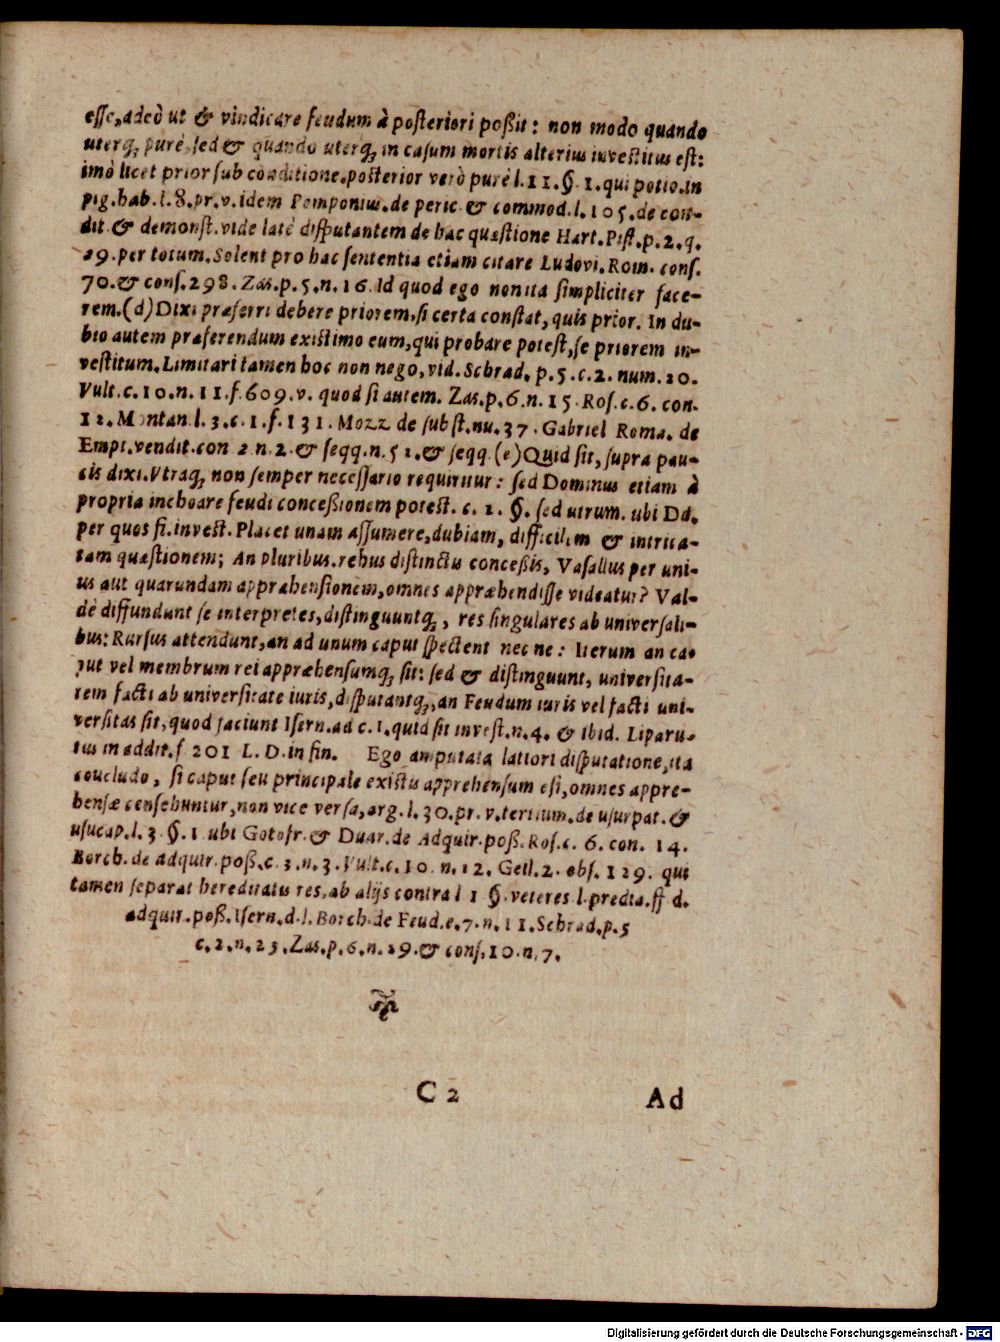 esse, adeò ut & vindicare feudum à posteriori poßit: non modo quando
uterq; purè sed & quando uterq; in casum mortis alterius investitus est:
imò licet prior sub conditione. posterior verò purè l. 11. §. 1. qui potio. in
pig. hab. l. 8. pr. v. idem Pomponius. de peric & commod. l. 105. de con-
dit & demonst. vide latè disputantem de hac quæstione Hart. Pist. p. 2. q.
29. per totum. Solent pro hac sententia etiam citare Ludovi. Rom. cons.
70. & cons. 298. Zas. p. 5. n. 16. Id quod ego non ita simpliciter face-
rem. (d) Dixi præferri debere priorem, si certa constat, quis prior. In du-
bio autem præferendum existimo eum, qui probare potest, se priorem in-
vestitum. Limitari tamen hoc non nego, vid. Schrad. p. 5. c. 2. num. 20.
Vult. c. 10. n. 11. f. 609. v. quod si autem. Zas. p. 6. n. 15. Ros. c. 6. con.
12. Montan. l. 3. c. 1. f. 131. Mozz de subst. nu. 37. Gabriel Roma. de
Empt. vendit. con 2 n. 2. & seqq. n. 51. & seqq (e) Quid sit, supra pau-
cis dixi. Utraq; non semper necessario requiritur: sed Dominus etiam à
propria inchoare feudi conceßionem potest. c. 1. §. sed utrum. ubi Dd.
per quos fi. invest. Placet unam assumere, dubiam, difficilem & intrica-
tam quæstionem; An pluribus. rebus distinctis conceßis, Vasallus per uni-
us aut quarundam appræhensionem, omnes appræhendisse videatur? Val-
dè diffundunt se interpretes, distinguuntq;, res singulares ab universali-
bus: Rursus attendunt, an ad unum caput spectent nec ne: Iterum an ca-
put vel membrum rei appræhensumq; sit: sed & distinguunt, universita-
tem facti ab universitate iuris, disputantq;, an Feudum iuris vel facti uni-
versitas sit, quod faciunt Isern. ad c. 1. quid sit invest. n. 4. & ibid. Liparu-
lus in addit. f 201 L. D. in fin. Ego amputata latiori disputatione, ita
concludo, si caput seu principale existis apprehensum est, omnes appre-
hensæ censebuntur, non vice versa, arg. l. 30. pr. v. tertium. de usurpat. &
usucap. l. 3 §. 1 ubi Gotofr. & Duar. de Adquir. poß. Ros. c. 6. con. 14.
Borch. de adquir. poß. c. 3. n. 3. Vult. c. 10. n. 12. Getl. 2. obs. 129. qui
tamen separat hereditatis res, ab alijs contra l 1 §. veteres l. predia. ff d.
adquir. poß. Isern. d. l. Borch. de Feud. e. 7. n. 11. Schrad. p. 5
c. 2. n. 23. Zas. p. 6. n. 19. & cons. 10. n, 7.
C 2 Ad
Digitalisierung gefördert durch die Deutsche Forschungsgemeinschaft - DFG